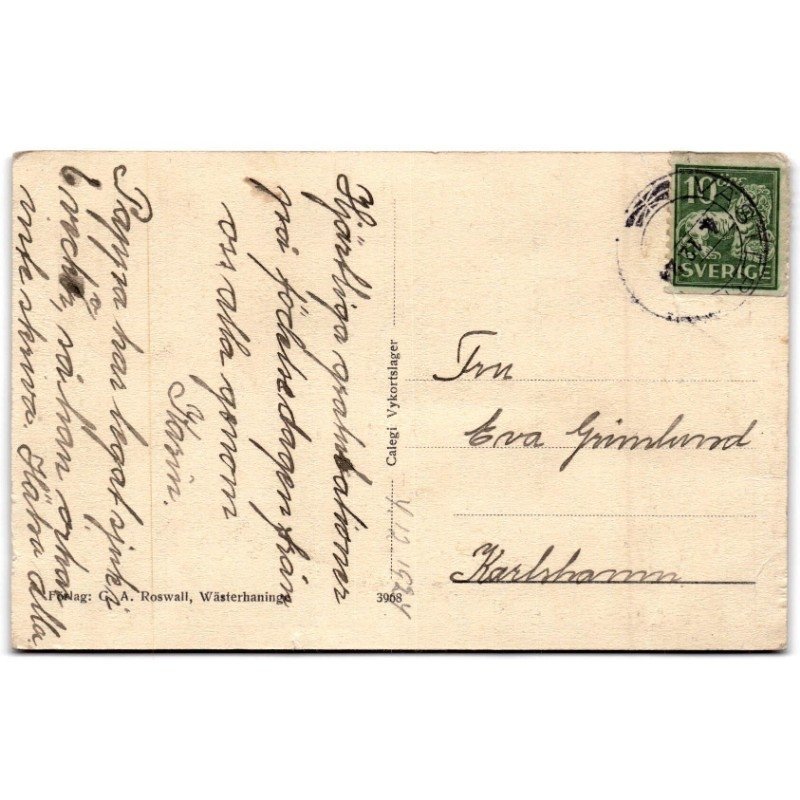 Hjärtliga gratulationer
på födelsedagen från
oss alla genom
Karin.
Pappa har legat sjuk i
6 veckor, så han orkar
inte skriva. Hälsa alla.
Calegi Vykortslager
Förlag: G. A. Roswall, Wästerhaninge
3968
10 ÖRE
SVERIGE
Fru
Eva Grimlund
Karlshamn